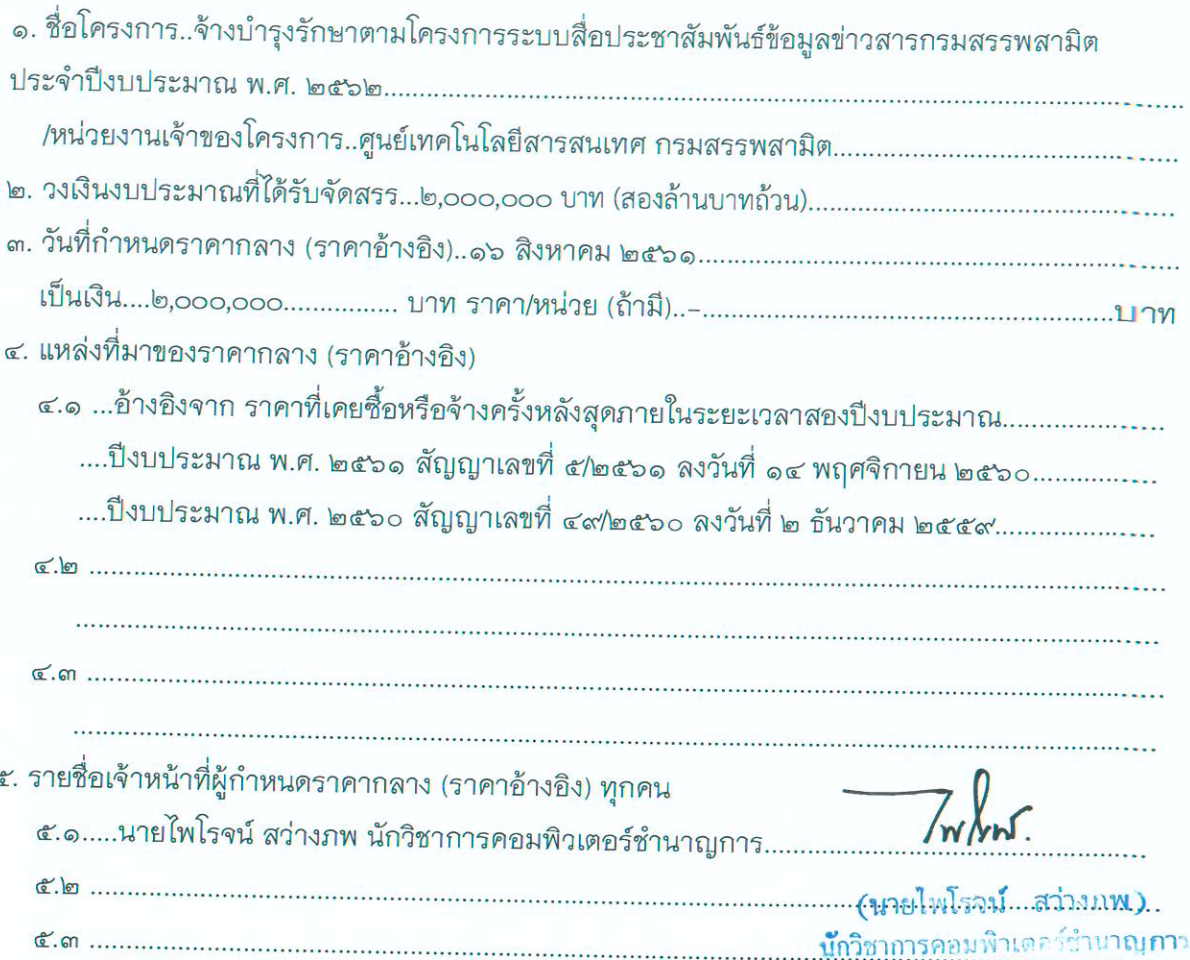 ๑. ชื่อโครงการ..จ้างบำรุงรักษาตามโครงการระบบสื่อประชาสัมพันธ์ข้อมูลข่าวสารกรมสรรพสามิต
ประจำปีงบประมาณ พ.ศ. ๒๕๖๒
/หน่วยงานเจ้าของโครงการ..ศูนย์เทคโนโลยีสารสนเทศ กรมสรรพสามิต
๒. วงเงินงบประมาณที่ได้รับจัดสรร...๒,๐๐๐,๐๐๐ บาท (สองล้านบาทถ้วน)
๓. วันที่กำหนดราคากลาง (ราคาอ้างอิง)..๑๖ สิงหาคม ๒๕๖๑
เป็นเงิน....๒,๐๐๐,๐๐๐............... บาท ราคา/หน่วย (ถ้ามี)..-......บาท
๔. แหล่งที่มาของราคากลาง (ราคาอ้างอิง)
๔.๑ ...อ้างอิงจาก ราคาที่เคยซื้อหรือจ้างครั้งหลังสุดภายในระยะเวลาสองปีงบประมาณ
....ปีงบประมาณ พ.ศ. ๒๕๖๑ สัญญาเลขที่ ๕/๒๕๖๑ ลงวันที่ ๑๔ พฤศจิกายน ๒๕๖๐
....ปีงบประมาณ พ.ศ. ๒๕๖๐ สัญญาเลขที่ ๔๙/๒๕๖๐ ลงวันที่ ๒ ธันวาคม ๒๕๕๙
๔.๒
๔.๓
๕. รายชื่อเจ้าหน้าที่ผู้กำหนดราคากลาง (ราคาอ้างอิง) ทุกคน
๕.๑.....นายไพโรจน์ สว่างภพ นักวิชาการคอมพิวเตอร์ชำนาญการ
๕.๒
(นายไพโรจน์ สว่างภพ)
๕.๓
นักวิชาการคอมพิวเตอร์ชำนาญการ